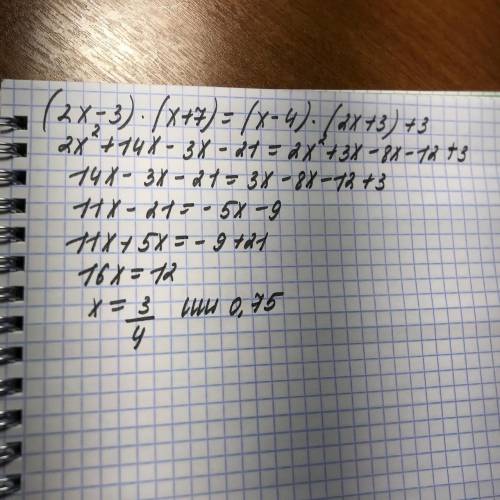 (2x-3)·(x+7)=(x-4)·(2x+3)+3
2x²+14x-3x-21=2x²+3x-8x-12+3
14x-3x-21=3x-8x-12+3
11x-21=-5x-9
11x+5x=-9+21
16x=12
x=3/4 или 0,75